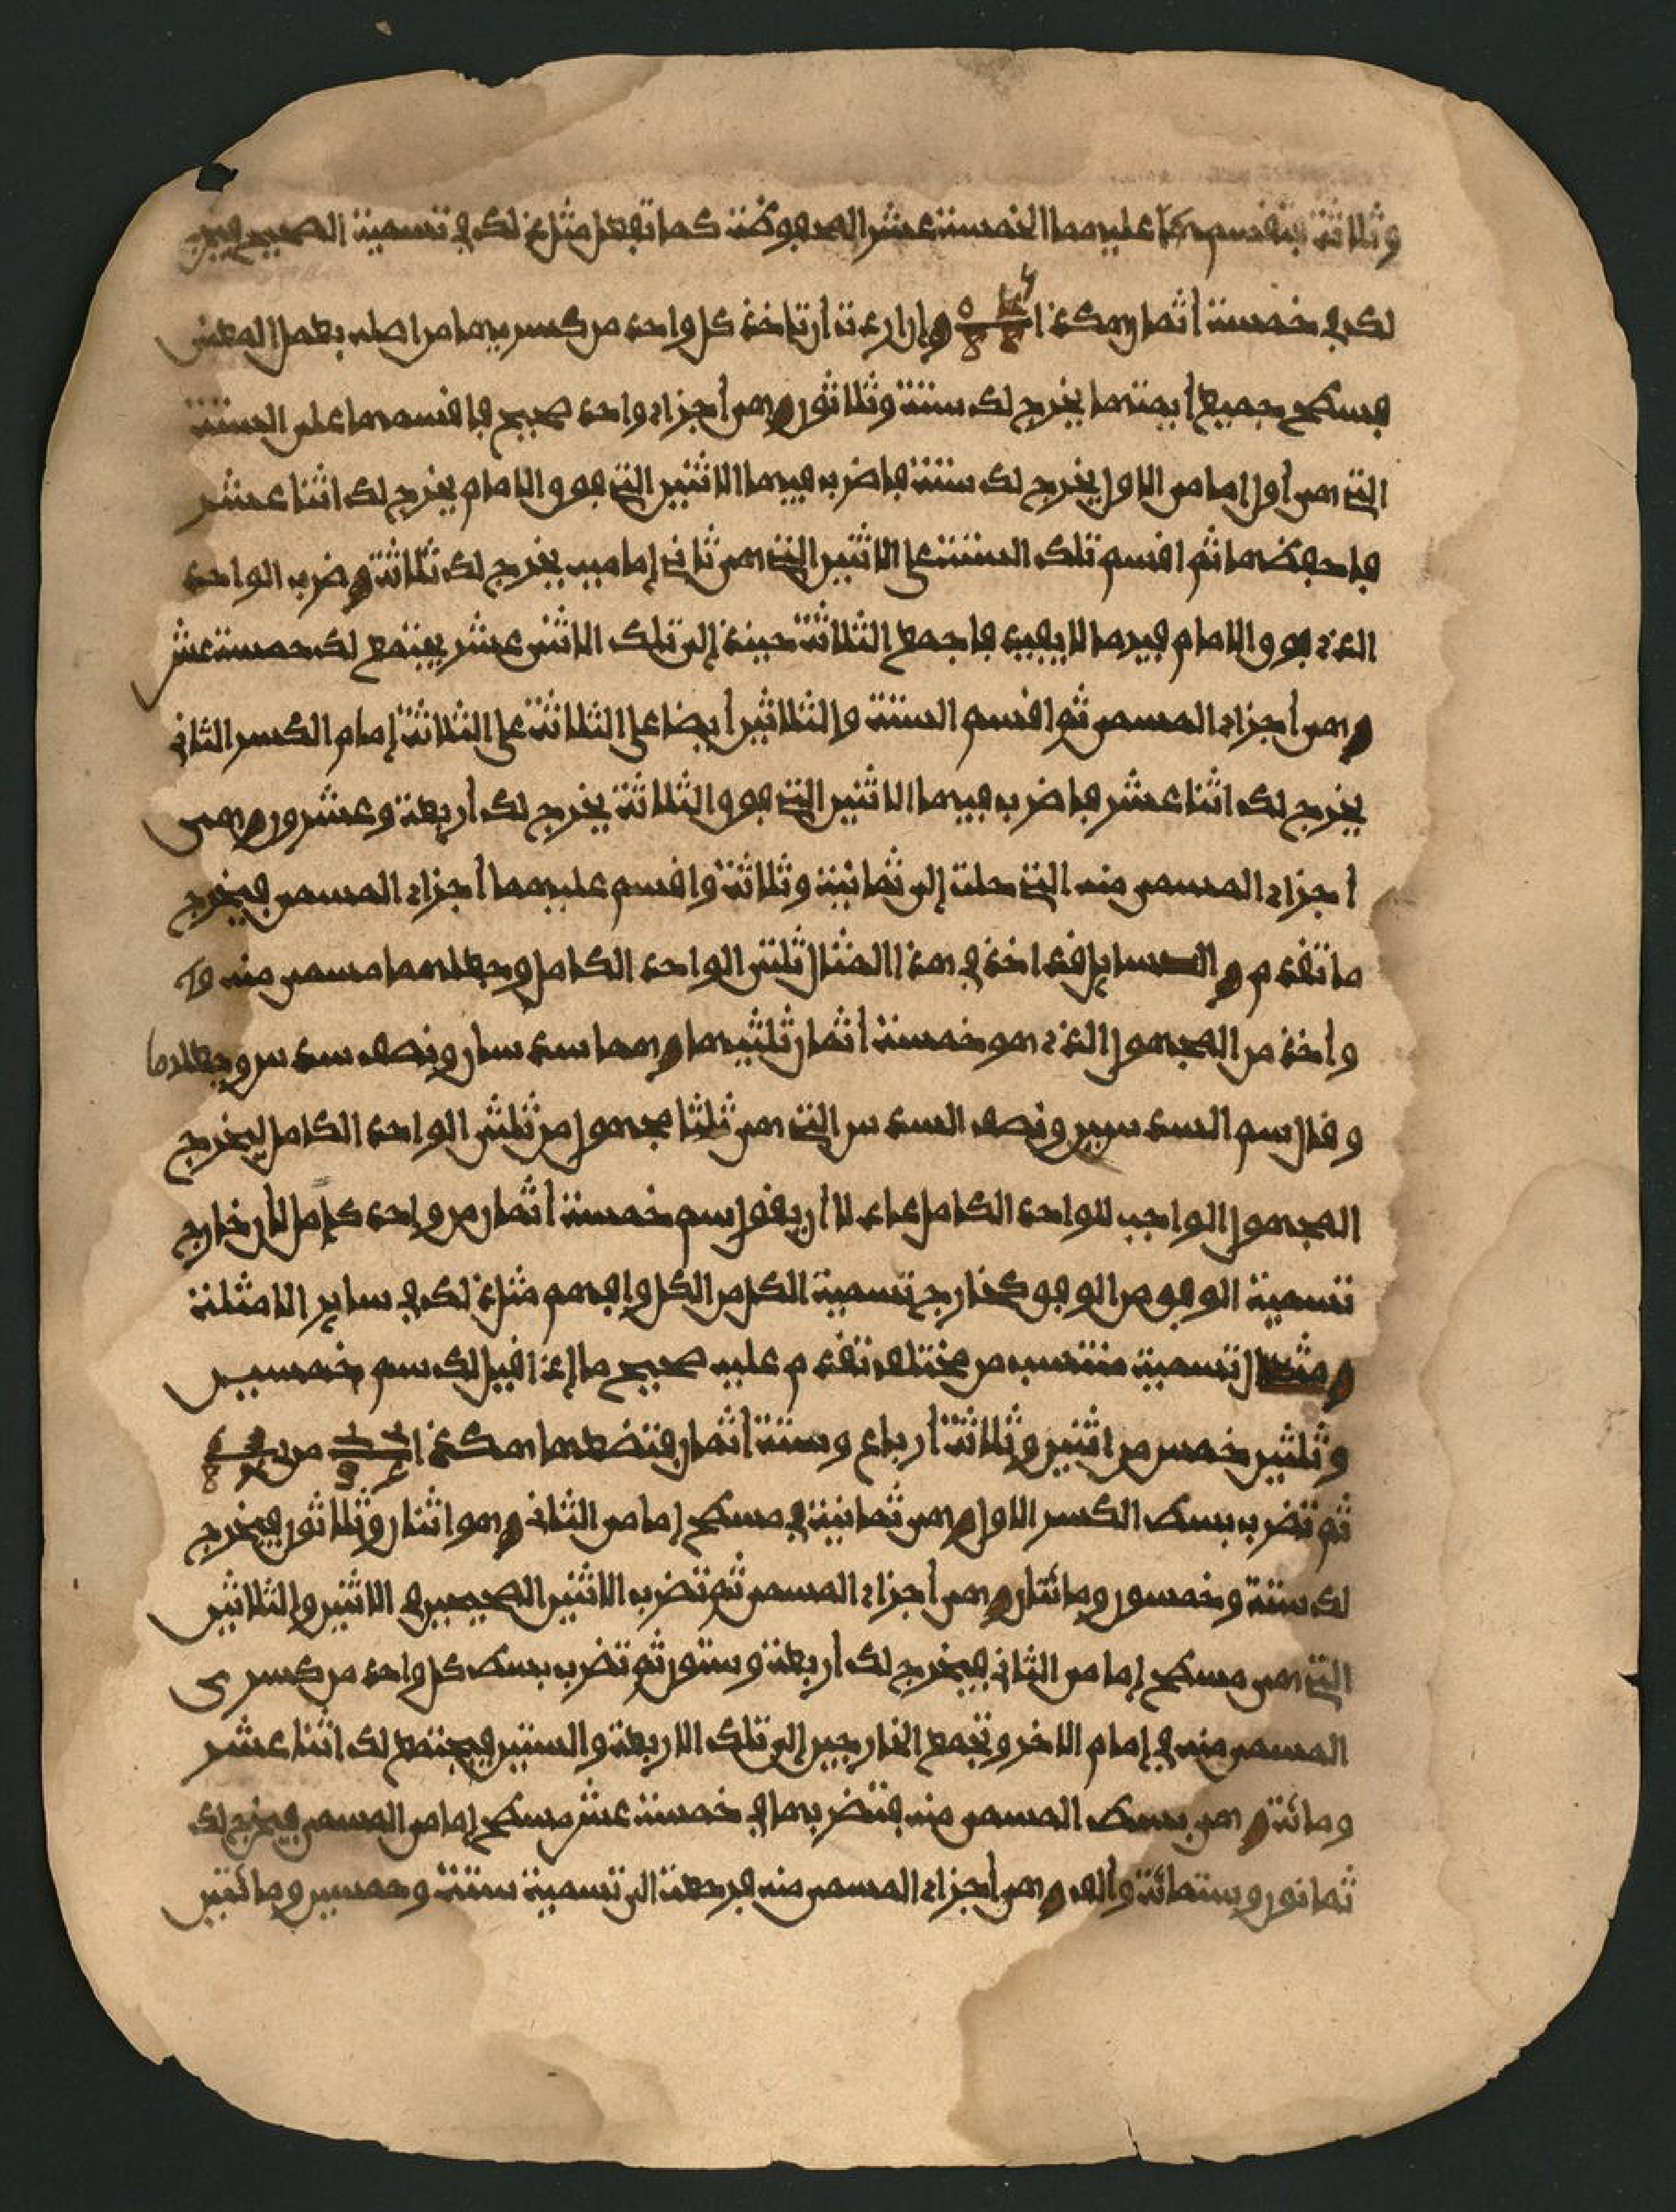 وثلاثة فتقسم عليهما الخمسة عشر المحفوظة كما تفعل مثل ذلك في تسمية الصحيح فيخرج
لك في خمسة أثمان هكذا ٥ ٨ وإن أردت أن تأخذ كل واحد من كسريهما من أصله بعمل المعنى
فسطح جميع أيمتهما يخرج لك ستة وثلاثون وهي أجزاء واحد صحيح فاقسمها على الستة
التي هي أول إمامي الأول يخرج لك ستة فاضرب فيها الاثنين التي فوق الامام يخرج لك اثنا عشر
فاحفظها ثم اقسم تلك الستة على الاثنين التي هي ثاني إماميه يخرج لك ثلاثة وضرب الواحد
الذي فوق الامام فيها لا يفيد فاجمع الثلاثة حينئذ إلى تلك الاثني عشر يجتمع لك خمسة عشر
وهي أجزاء المسمى ثم اقسم الستة والثلاثين أيضا على الثلاثة على الثلاثة إمام الكسر الثاني
يخرج لك اثنا عشر فاضرب فيها الاثنين التي فوق الثلاثة يخرج لك أربعة وعشرون وهي
أجزاء المسمى منه التي حلت إلى ثمانية وثلاثة واقسم عليهما أجزاء المسمى فيخرج
ما تقدم والسايل قد اخذ في هذا المثال ثلثي الواحد الكامل وجعلهما مسمى منه
وأخذ من المجهول الذي هو خمسة أثمان ثلثيها وهما سدسان ونصف سدس وجعلها
وقال سم السدسين ونصف السدس التي هي ثلثا مجهول من ثلثي الواحد الكامل ليخرج
المجهول الواجب للواحد الكامل عادلا أن يقول سم خمسة أثمان من واحد كامل لأن خارج
تسمية الوفق من الوفق كخارج تسمية الكل من الكل وافهم مثل ذلك في ساير الامثلة
ومثال تسمية منتسب من مختلف تقدم عليه صحيح ما إذا قيل لك سم خمسين
وثلثين خمس من اثنين وثلاثة أرباع وستة أثمان فتضعها هكذا من
ثم تضرب بسط الكسر الاول وهي ثمانية في مسطح إمامي الثاني وهو اثنان وثلاثون فيخرج
لك ستة وخمسون ومائتان وهي أجزاء المسمى ثم تضرب الاثنين الصحيحين في الاثنين والثلاثين
التي هي مسطح إمامي الثاني فيخرج لك أربعة وستون ثم تضرب بسط كل واحد من كسري
المسمى منه في إمام الاخر وتجمع الخارجين إلى تلك الاربعة والستين فيجتمع لك اثنا عشر
ومائة وهي بسط المسمى منه فتضربها في خمسة عشر مسطح إمامي المسمى فيخرج لك
ثمانون وستمائة وألف وهي أجزاء المسمى منه فرجعت الى تسمية ستة وخمسين ومائتين